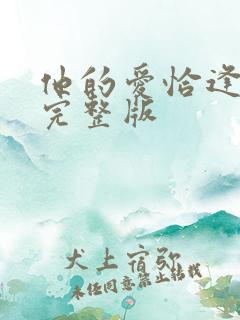 他的爱恰逢
完整版
犬上宿弥
未经同意禁止转载